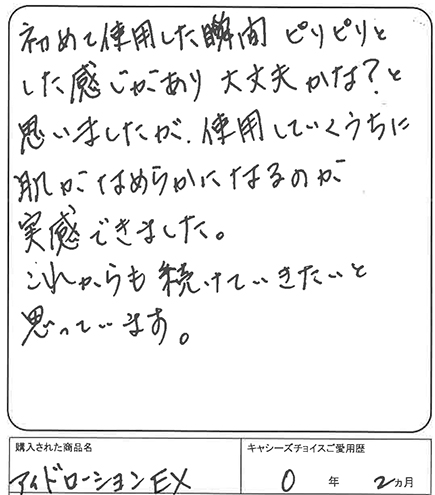 初めて使用した瞬間 ピリピリと
した感じがあり 大丈夫かな？と
思いましたが、使用していくうちに
肌がなめらかになるのが
実感できました。
これからも続けていきたいと
思っています。
購入された商品名
アイドローションEX
キャシーズチョイスご愛用歴
0 年 2ヵ月